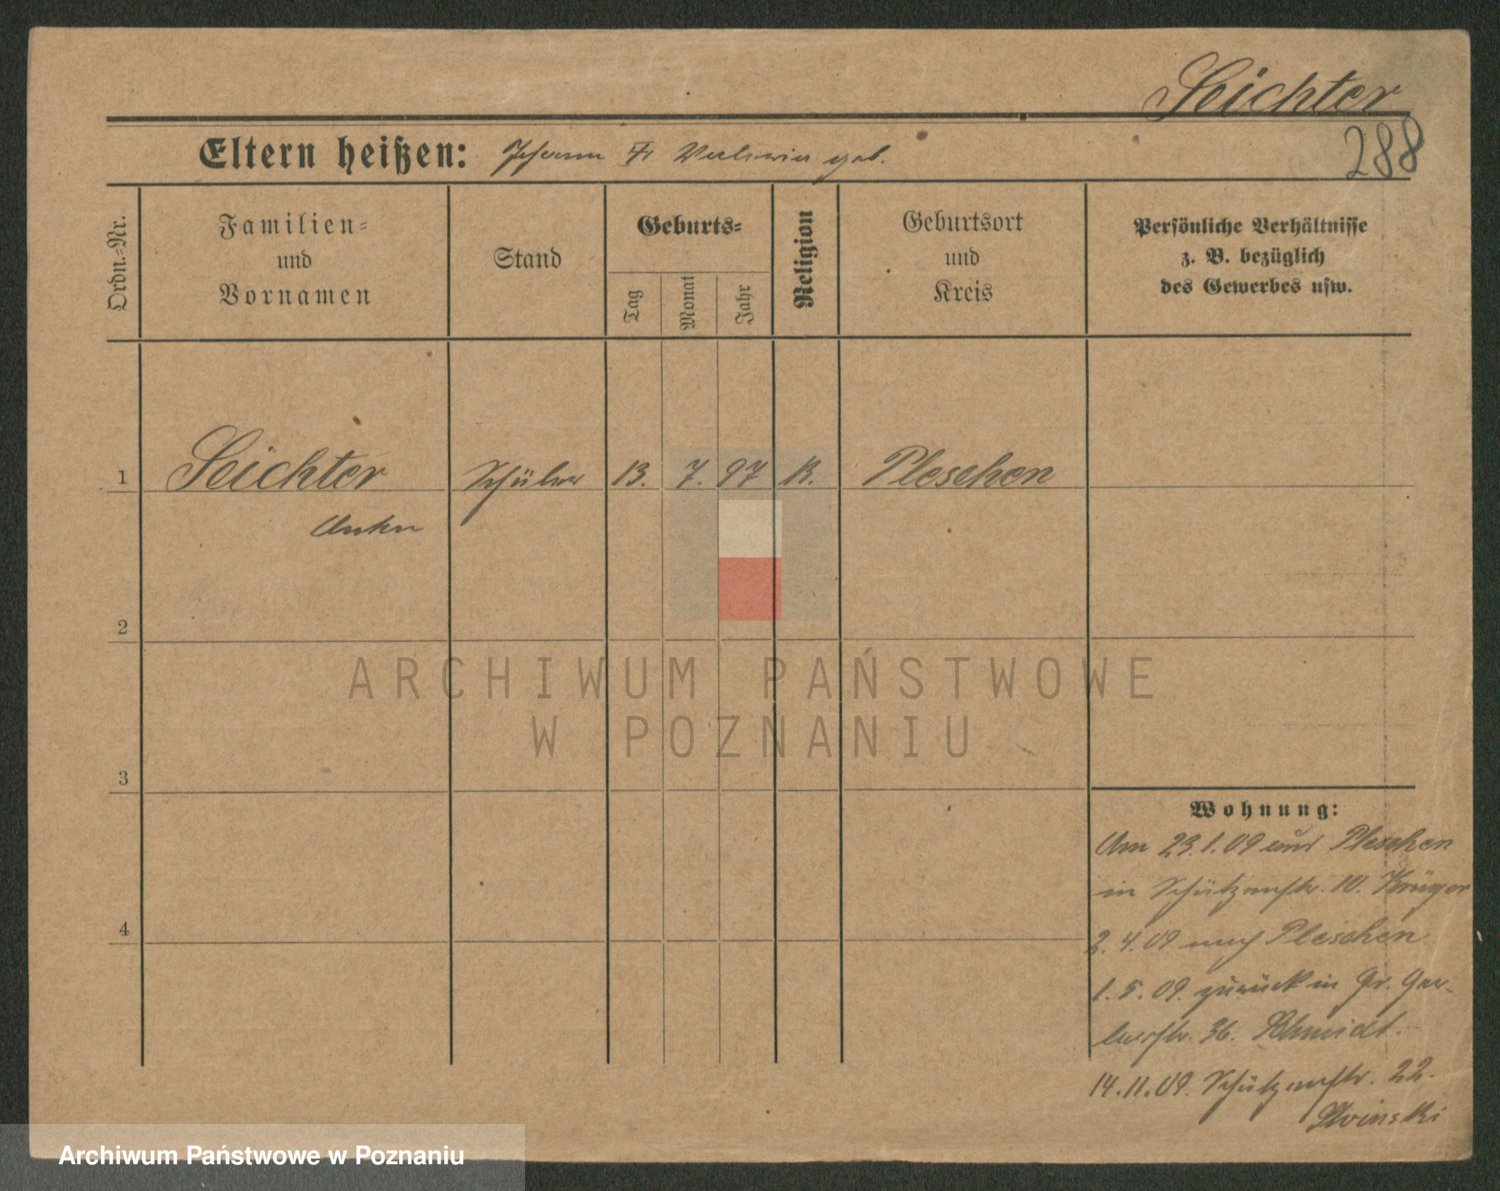 Seichter
288
Eltern heißen: Johann Fr geb.
Ordn.=Nr.
Familien=
und
Vornamen
Stand
Geburts=
Tag
Monat
Jahr
Religion
Geburtsort
und
Kreis
Persönliche Verhältnisse
z. B. bezüglich
des Gewerbes usw.
1 Seichter Schüler 13. 7. 97 K. Pleschen
Anton
2
3
4
Wohnung:
Am 23.1.09 aus Pleschen
in Schützenstr. 10. Krüger
2.4.09 nach Pleschen
1.5.09. zurück in Gr. Ger-
berstr. 36. Schmidt.
14.11.09. Schützenstr. 22.
ARCHIWUM PAŃSTWOWE
W POZNANIU
Archiwum Państwowe w Poznaniu